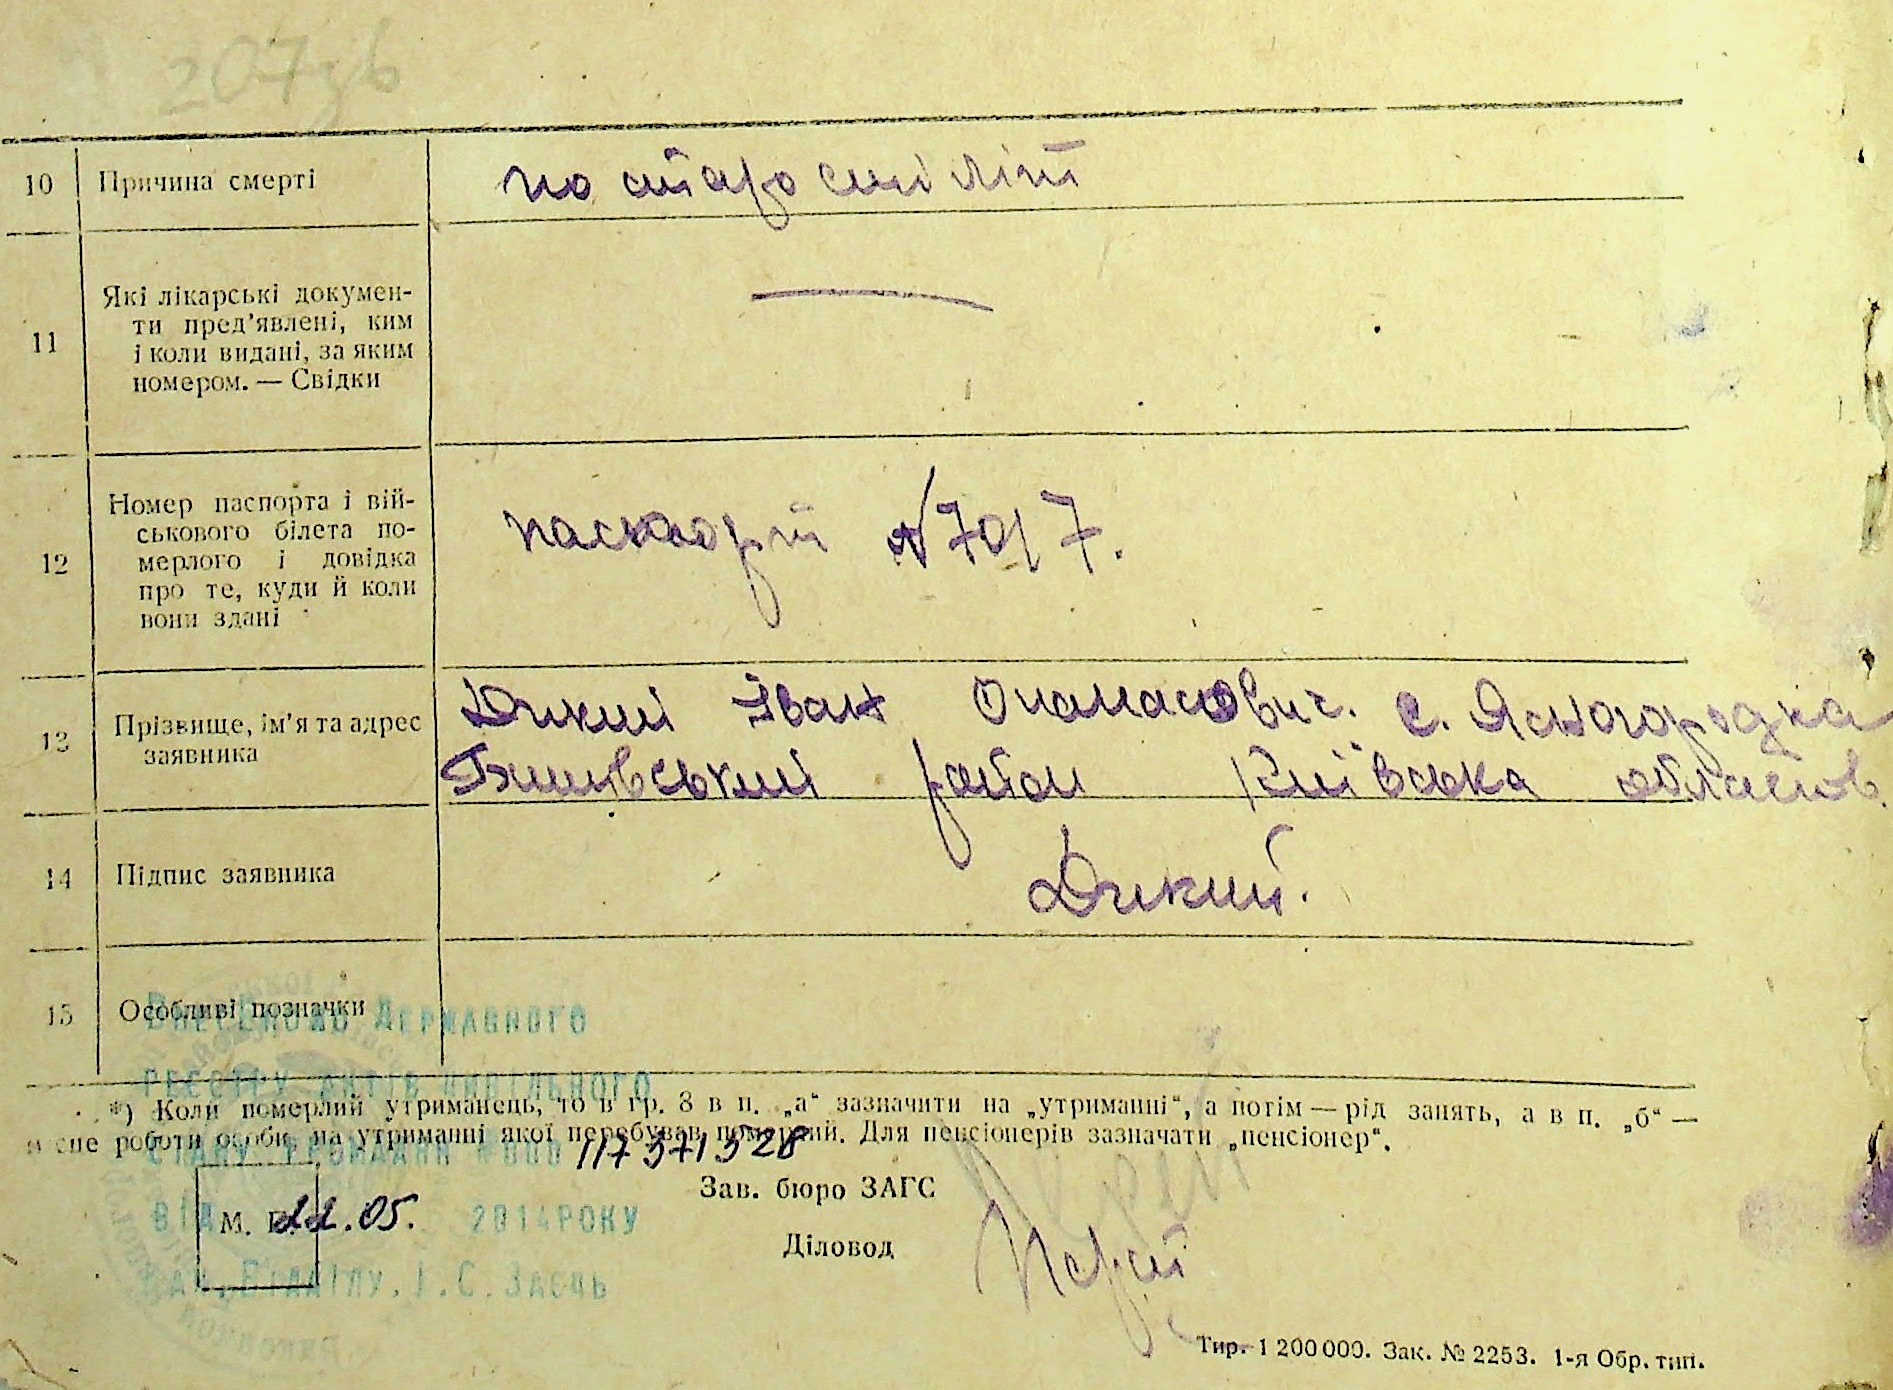 10 Причина смерті по старості літ
11 Які лікарські докумен-
ти пред'явлені, ким
і коли видані, за яким
номером. — Свідки
12 Номер паспорта і вій-
ськового білета по-
мерлого і довідка
про те, куди й коли
вони здані
паспорт № 7017.
13 Прізвище, ім'я та адрес
заявника
Дикий Іван Опанасович. с. Ясногородка
район Київська область
14 Підпис заявника Дикий.
15 Особливі позначки
Внесено до Державного
реєстру актів цивільного
*) Коли померлий утриманець, то в гр. 8 в п. „а“ зазначити на „утриманні“, а потім — рід занять, а в п. „б“ —
місце роботи особи, на утриманні якої перебував померлий. Для пенсіонерів зазначати „пенсіонер“.
стану громадян 117371528
Зав. бюро ЗАГС
від 22.05. 2014 року
М. П.
Діловод
Нач. Відділу. І. С. Заєць
Тир. 1 200 000. Зак. № 2253. 1-я Обр. тип.